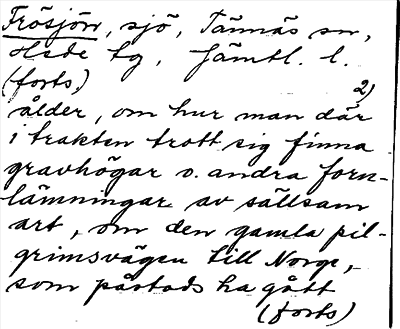 Frösjön, sjö, Tännäs sn,
Hede tg, Jämtl. l.
(forts.) 2)
ålder, om hur man där
i trakten trott sig finna
gravhögar o. andra forn-
lämningar av sällsam
art, om den gamla pil-
grimsvägen till Norge,
som påstods ha gått
(forts)